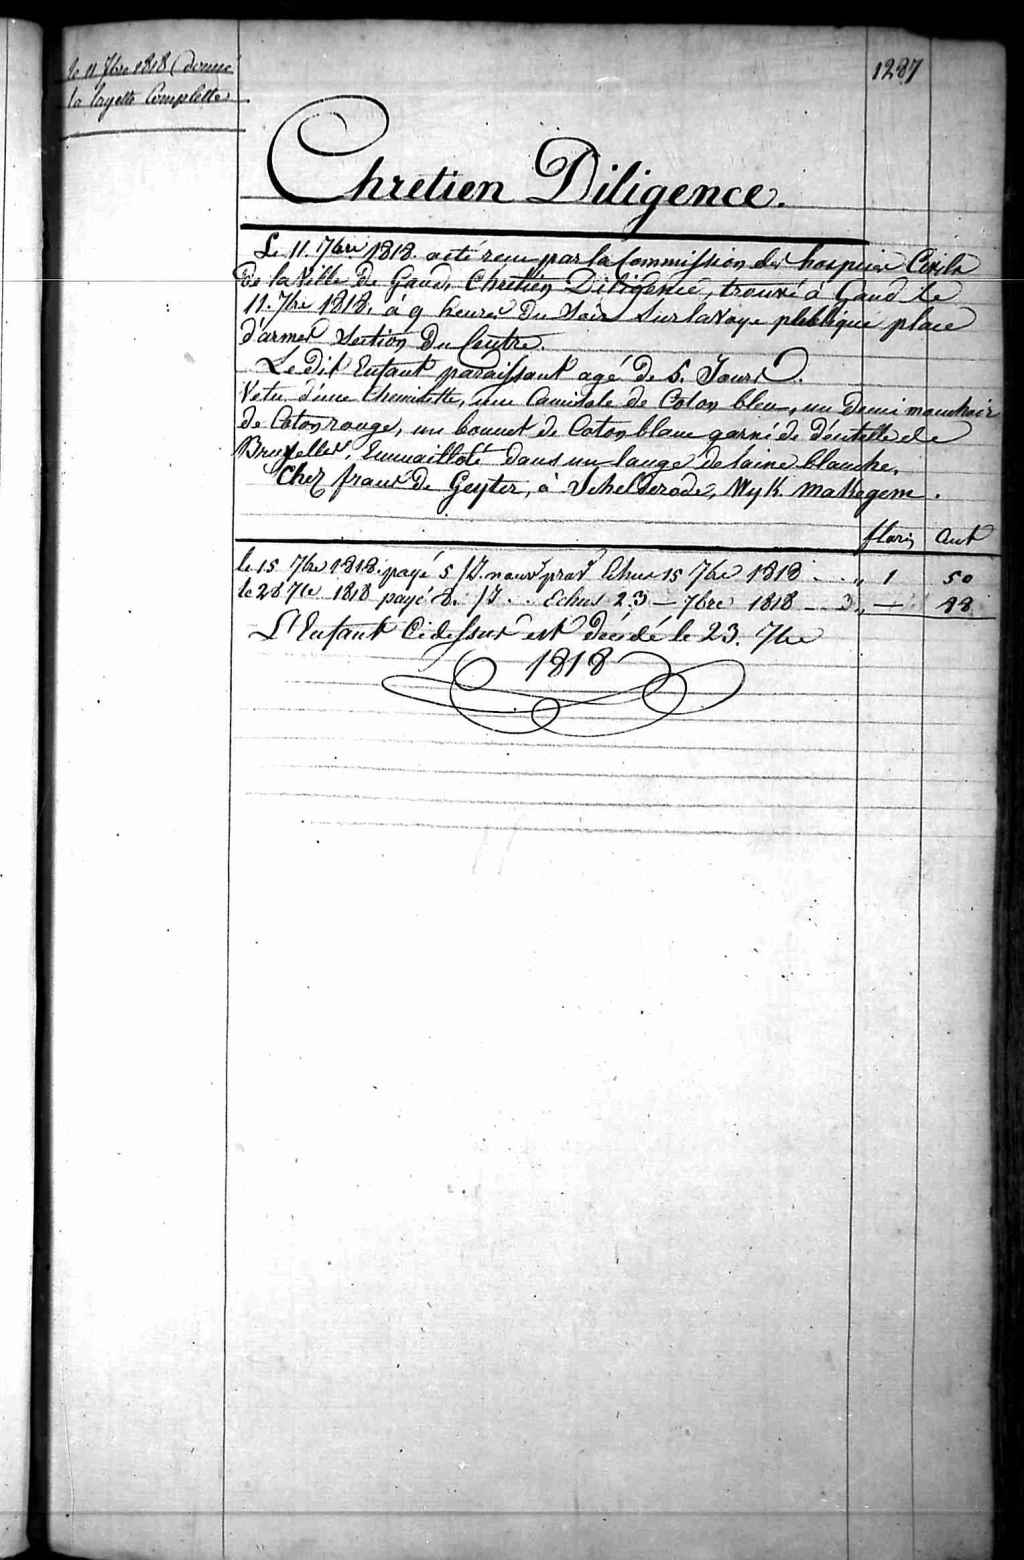 le 11 7bre 1818 donné
la layette Complette
1287
Chretien Diligence.
Le 11. 7bre 1818. acté reçu par la Commission des hospices Civils
de la Ville de Gand, Chretien Diligence, trouvé à Gand le
11. 7bre 1818, à 9 heures du Soir Sur la Voye publique place
d'armes Section du Centre.
Le dit Enfant paraissant agé de 5. Jours.
Vetu d'une Chemisette, une Camisole de Coton bleu, un Demi mouchoir
de Coton rouge, un bonnet de Coton blanc garni de déntelle de
Bruxelles, Emmailloté dans un lange de laine blanche,
Chez frans De Geyter, à Schelderode, Wyk Makegem.
floris Cent
le 15 7bre 1818 payé 5 /J. nourr prov Echus 15 7bre 1818 . . „ 1 50
le 28 7bre 1818 payé 8. /J . . Echus 23 — 7bre 1818 — D „ — 88
L'Enfant Cidessus est Décédé le 23. 7bre
1818